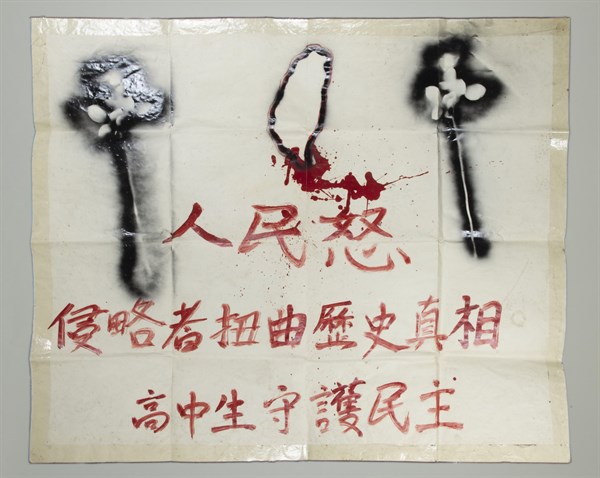 人民怒
侵略者扭曲歷史真相
高中生守護民主